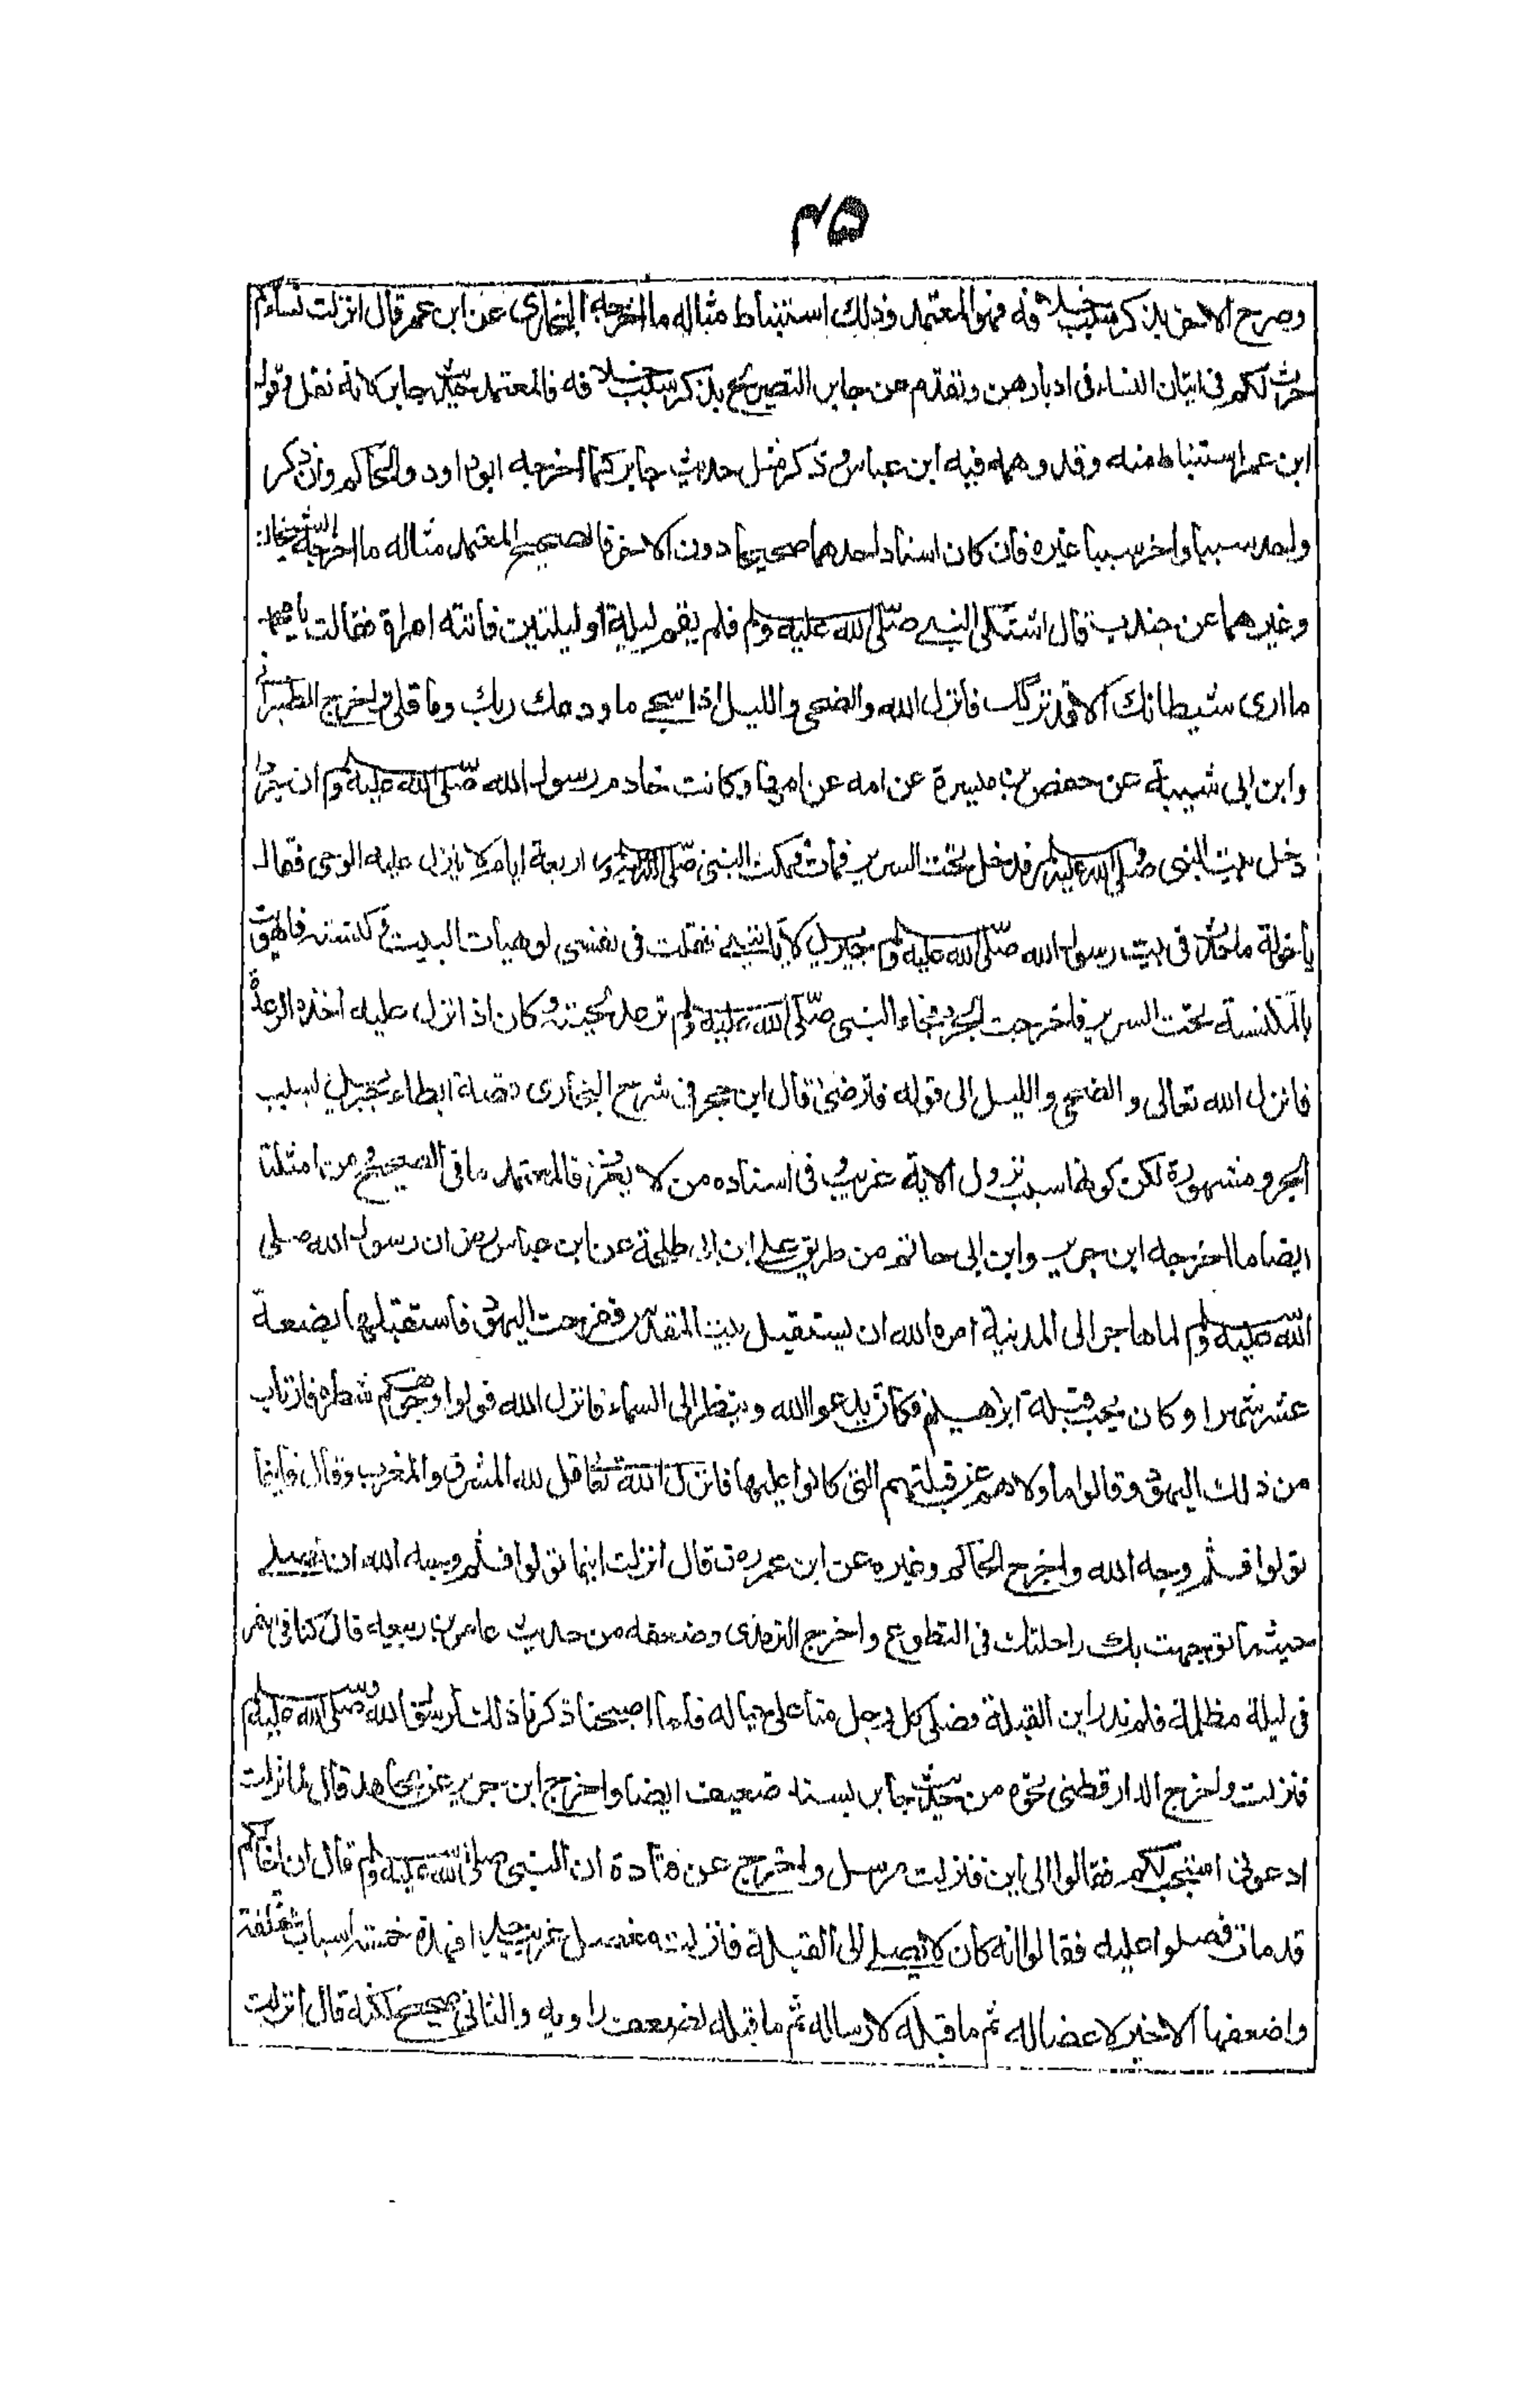 ٤٥
وصرح الاخر بذكر سبب خلافه فهو المعتمد وذلك استنباط مثاله ما اخرجه البخاري عن ابن عمر قال انزلت نساؤكم
حرث لكم في اتيان النساء في ادبارهن وتقدم عن جابر التصريح بذكر سبب خلافه فالمعتمد حديث جابر لانه نقل وقول
ابن عمر استنباط منه وقد وهمه فيه ابن عباس وذكر مثل حديث جابر كما اخرجه ابوداود والحاكم وان ذكر
واحد سببا واخر سببا غيره فان كان اسناد احدهما صحيحا دون الاخر فالصحيح المعتمد مثاله ما اخرجه الشيخان
وغيرهما عن جندب قال اشتكى النبي صلى الله عليه وسلم فلم يقم ليلة او ليلتين فاتته امراة فقالت يا محمد
ما ارى شيطانك الا قد تركك فانزل الله والضحى والليل اذا سجى ما ودعك ربك وما قلى واخرج الطبراني
وابن ابي شيبة عن حفص بن ميسرة عن امه عن امها وكانت خادم رسول الله صلى الله عليه وسلم ان جروا
دخل بيت النبي صلى الله عليه وسلم فدخل تحت السرير فمات فمكث النبي صلى الله عليه وسلم اربعة ايام لا ينزل عليه الوحي فقال
يا خولة ما حدث في بيت رسول الله صلى الله عليه وسلم جبريل لا ياتيني فقلت في نفسي لو هيات البيت وكنسته فاهويت
بالمكنسة تحت السرير فاخرجت الجرو فجاء النبي صلى الله عليه وسلم ترعد لحيته وكان اذا نزل عليه اخذه الرعدة
فانزل الله تعالى والضحى والليل الى قوله فترضى قال ابن حجر في شرح البخاري قصة ابطاء جبريل بسبب
الجرو مشهورة لكن كونها سبب نزول الاية غريب وفي اسناده من لا يعرف فالمعتمد ما في الصحيح ومن امثلته
ايضا ما اخرجه ابن جرير وابن ابي حاتم من طريق علي ابن ابي طلحة عن ابن عباس رض ان رسول الله صلى
الله عليه وسلم لما هاجر الى المدينة امره الله ان يستقبل بيت المقدس ففرحت اليهود فاستقبلها بضعة
عشر شهرا وكان يحب قبلة ابراهيم فكان يدعوا الله وينظر الى السماء فانزل الله فولوا وجوهكم شطره فارتاب
من ذلك اليهود وقالوا ما ولاهم عن قبلتهم التي كانوا عليها فانزل الله تعا قل لله المشرق والمغرب وقال فاينما
تولوا فثم وجه الله واخرج الحاكم وغيره عن ابن عمر قال انزلت اينما تولوا فثم وجه الله ان تصلي
حيثما توجهت بك راحلتك في التطوع واخرج الترمذي وضعفه من حديث عامر بن ربيعه قال كنا في سفر
في ليلة مظلمة فلم ندر اين القبلة فصلى كل رجل منا على حياله فلما اصبحنا ذكرنا ذلك لرسول الله صلى الله عليه وسلم
فنزلت واخرج الدارقطني نحوه من حديث جابر بسند ضعيف ايضا واخرج ابن جرير عن مجاهد قال لما نزلت
ادعوني استجب لكم فقالوا الى اين فنزلت مرسل واخرج عن قتادة ان النبي صلى الله عليه وسلم قال ان اخا لكم
قد مات فصلوا عليه فقالوا انه كان لا يصلي الى القبلة فنزلت معضل غريب جدا فهذه خمسة اسباب مختلفة
واضعفها الاخير لاعضاله ثم ما قبله لارساله ثم ما قبله لضعف راويه والثاني صحيح لكنه قال انزلت